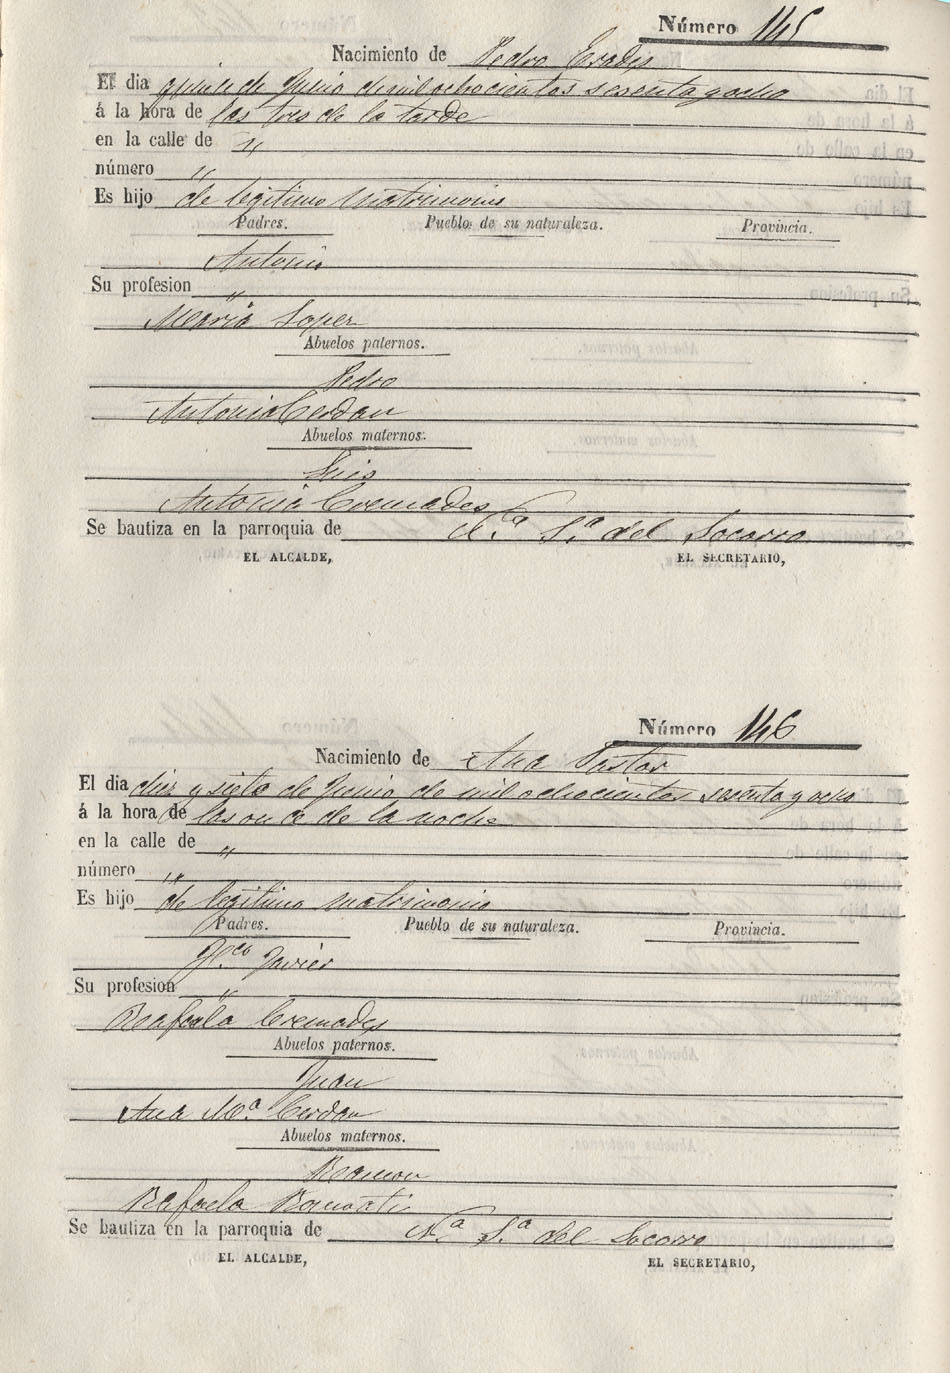 Número 145
Nacimiento de Pedro Pradés
El dia quince de Junio de mil ochocientos sesenta y ocho
á la hora de las tres de la tarde
en la calle de "
número "
Es hijo de legitimo matrimonio
Padres. Pueblo de su naturaleza. Provincia.
Antonio
Su profesion "
Maria Lopez
Abuelos paternos.
Pedro
Antonia Cerdan
Abuelos maternos.
Luis
Antonia Cremades
Se bautiza en la parroquia de N.ª S.ª del Socorro
EL ALCALDE, EL SECRETARIO,
Número 146
Nacimiento de Ana Pastor
El dia diez y siete de Junio de mil ochocientos sesenta y ocho
á la hora de las once de la noche
en la calle de "
número "
Es hijo de legitimo matrimonio
Padres. Pueblo de su naturaleza. Provincia.
Fco Javier
Su profesion "
Rafaela Cremades
Abuelos paternos.
Juan
Ana Mª Cerdan
Abuelos maternos.
Ramon
Rafaela
Se bautiza en la parroquia de Nª Sª del Socorro
EL ALCALDE, EL SECRETARIO,